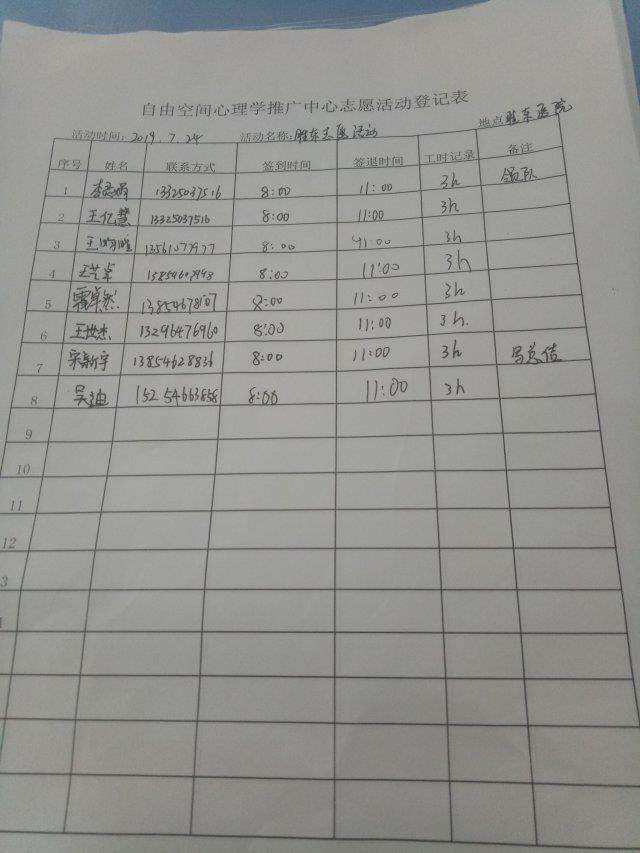 自由空间心理学推广中心志愿活动登记表
活动时间：2019.7.24 活动名称：胜东志愿活动 地点 胜东医院
序号 姓名 联系方式 签到时间 签退时间 工时记录 备注
1 13325037516 8:00 11:00 3h 领队
2 王亿慧 13325037516 8:00 11:00 3h
3 13561077977 8:00 11:00 3h
4 王芝卓 8:00 11:00 3h
5 霍卓然 13854678107 8:00 11:00 3h
6 王世杰 13296476960 8:00 11:00 3h.
7 宋新宇 13854628836 8:00 11:00 3h 写总结
8 吴迪 15254663858 8:00 11:00 3h
9
10
11
12
3